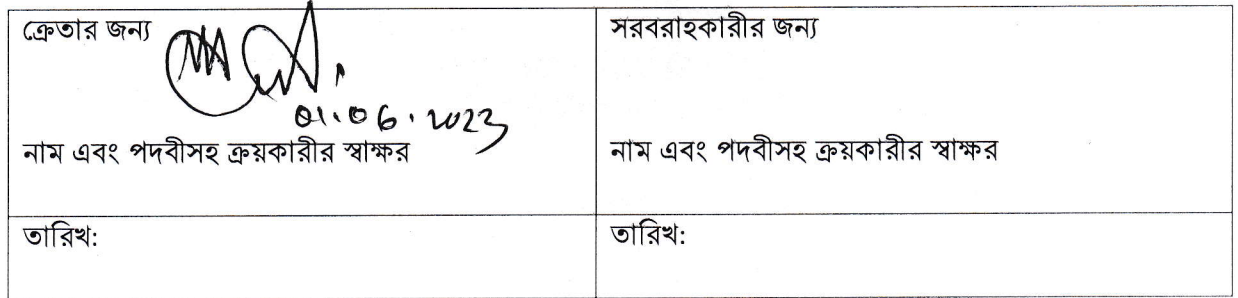 ক্রেতার জন্য
01.06.2023
নাম এবং পদবীসহ ক্রয়কারীর স্বাক্ষর
তারিখ:
সরবরাহকারীর জন্য
নাম এবং পদবীসহ ক্রয়কারীর স্বাক্ষর
তারিখ: